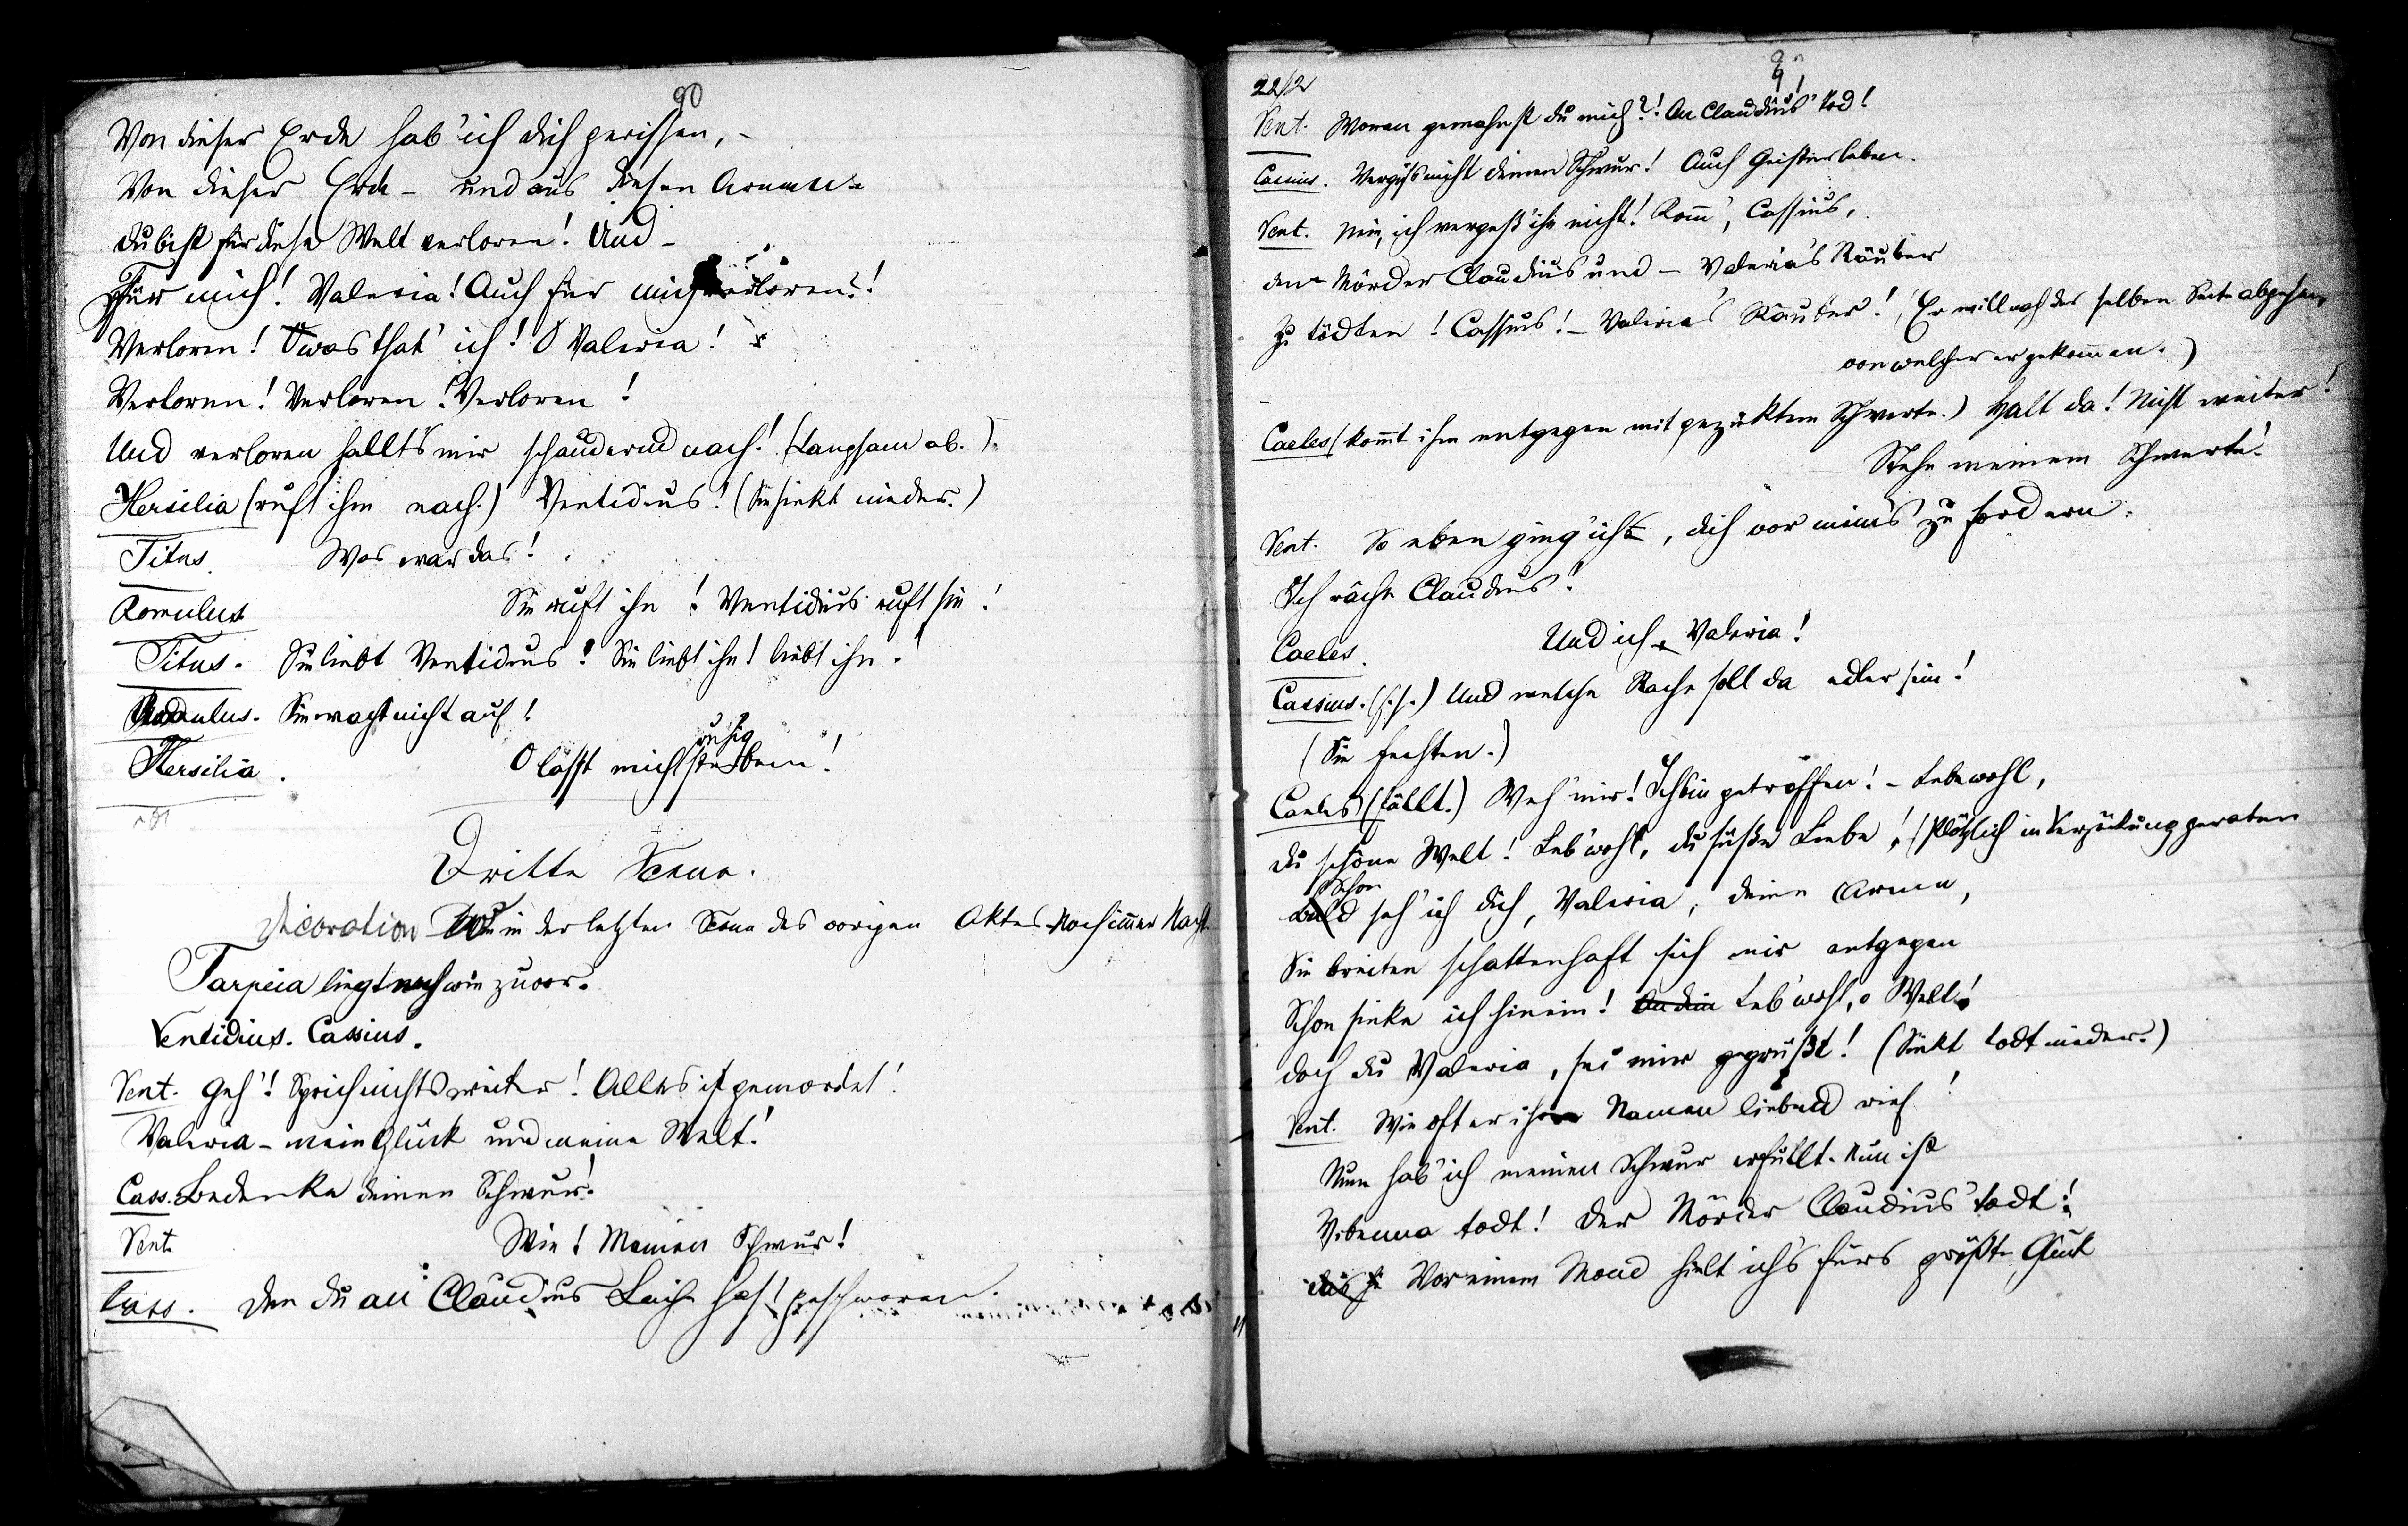 90
Von dieser Erde hab' ich dich gerissen, –
Von dieser Erde – und aus diesen Armen –
du bist für diese Welt verloren! Und –
Für mich! Valeria! Auch für mich verloren!
Verloren! O was that' ich! O Valeria!
Verloren! Verloren! Verloren!
Und verloren hallt's mir schaudernd nach! (Langsam ab.)
Hersilia (ruft ihm nach.) Ventidius! (Sie sinkt nieder.)
Titus. Was war das!
Romulus Sie ruft ihn! Ventidius ruft sie!
Titus. Sie liebt Ventidius! Sie liebt ihn! liebt ihn!
Romulus. Sie wacht nicht auf!
ruhig
Hersilia. O lasst mich sterben!
Dritte Scene.
Decoration wie in der letzten Scene des vorigen Aktes. Noch immer Nacht.
Tarpeia liegt noch wie zuvor.
Ventidius. Cassius.
Vent. Geh'! Sprich nichts weiter! Alles ist gemordet!
Valeria – mein Glück und meine Welt!
Cass. Bedenke deinen Schwur!
Vent. Wie! Meinen Schwur!
Cass. den du an Claudius Leiche hast geschworen.
22/2
91
Vent. Woran gemahnst du mich?! An Claudius' Tod!
Cassius. Vergiß nicht deinen Schwur! Auch Geister leben.
Vent. Nein, ich vergeß' ihn nicht! Kom̅', Cassius,
den Mörder Claudius und – Valeria's Räuber
zu tödten! Cassius! – Valeria's Räuber! (Er will nach derselben Seite abgehen,
von welcher er gekom̅en.)
Caeles (kom̅t ihm entgegen mit gezücktem Schwerte.) Halt da! Nicht weiter!
Stehe meinem Schwerte!
Vent. So eben ging ich, dich vor meins zu fordern.
Ich räche Claudius!
Caeles. Und ich Valeria!
Cassius. (f. s.) Und welche Rache soll da edler sein!
(Sie fechten.)
Caeles (fällt.) Weh' mir! Ich bin getroffen! – Lebe wohl,
du schöne Welt! Leb' wohl, du süße Liebe! (Plötzlich in Verzückung geraten
Schon
Bald seh' ich dich, Valeria, deine Arme,
Sie breiten schattenhaft sich mir entgegen
Schon sinke ich hinein! Leb' wohl, o Welt!
doch du Valeria, sei mir gegrüßt! (Sinkt todt nieder.)
Vent. Wie oft er ihren Namen liebend rief!
Nun hab' ich meinen Schwur erfüllt. Nun ist
Vibenna todt! Der Mörder Claudius' todt!
Vor einem Mond hielt ich's fürs größte Glück